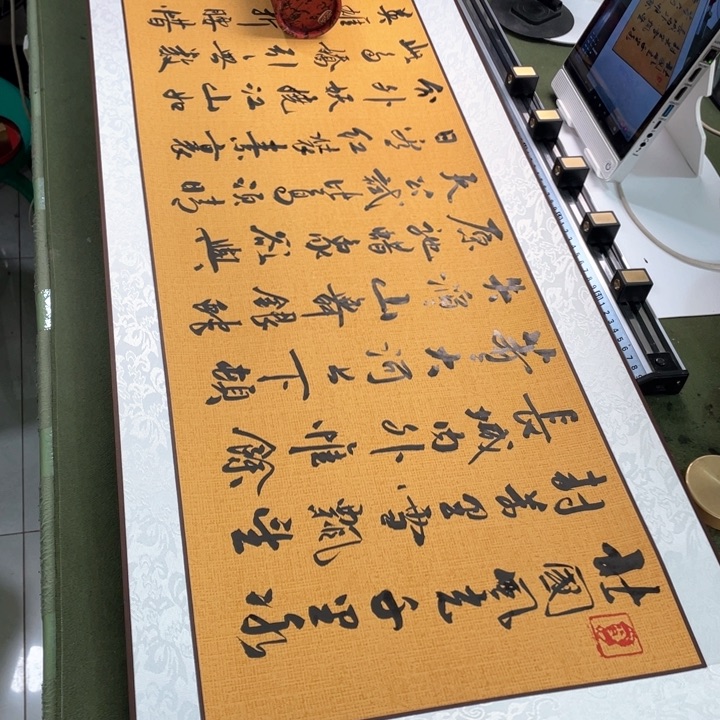 北國風光千里冰
封萬里雪飄望
長城內外惟餘
莽大河上下頓
失滔山舞銀蛇
原馳蠟象欲與
天公試比高須晴
日看紅裝素裹
分外妖嬈江山如
此多嬌引無數
英雄折腰惜